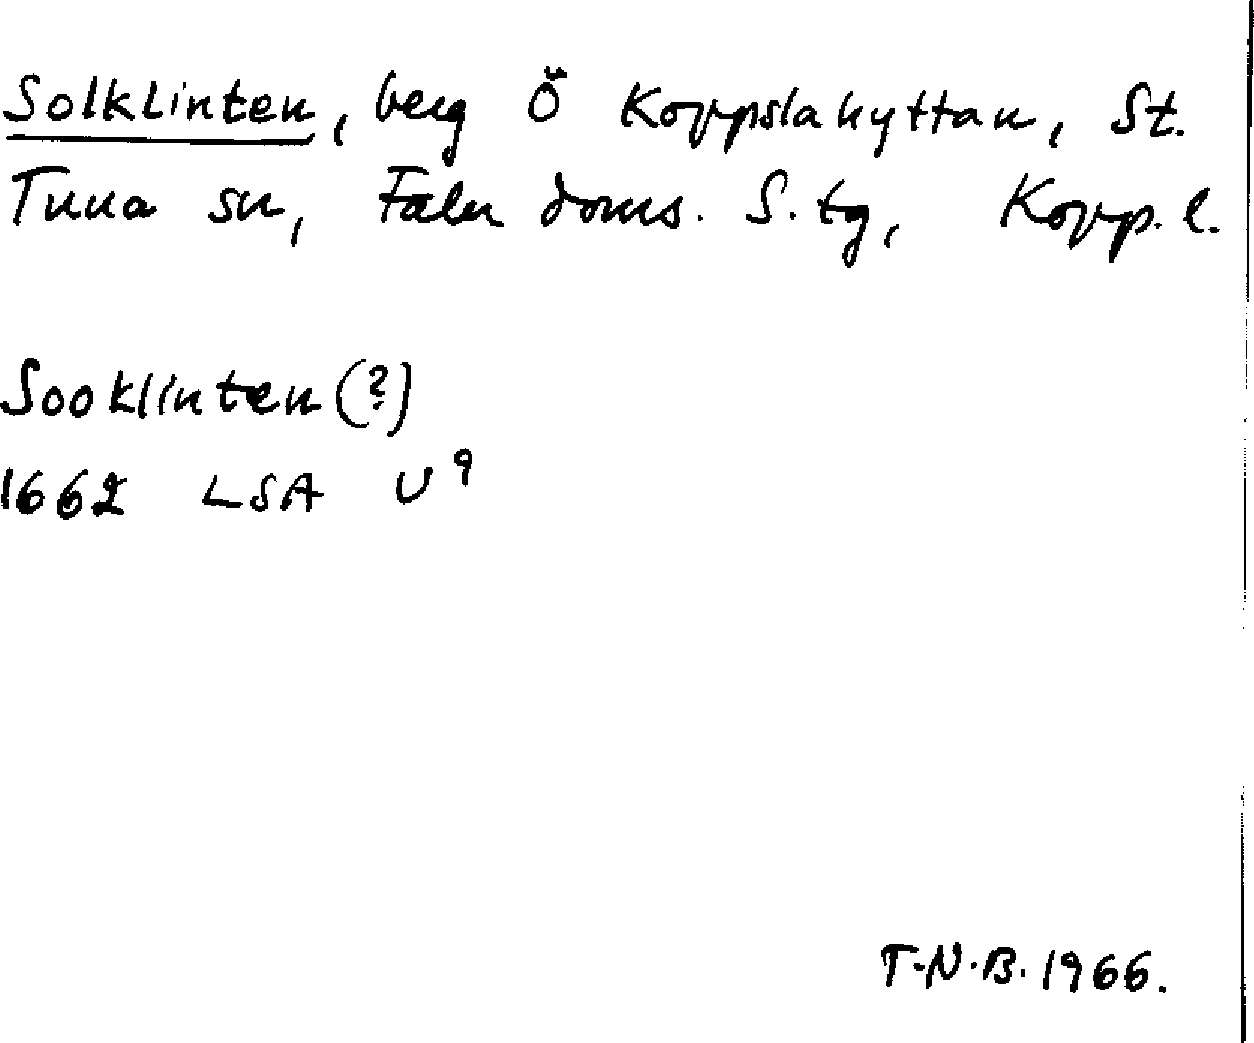 Solklinten, berg Ö Koppslahyttan, St.
Tuna sn, Falu doms. S. tg, Kopp. l.
Sooklinten (?)
1662 LSA U⁹
T-N.B. 1966.